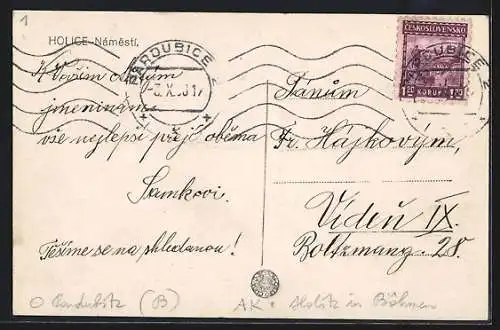 1
HOLICE-Náměstí.
PARDUBICE 2
-3.X.
ČESKOSLOVENSKO
1.20 KORUNY 1.20
PARDUBICE 2
K Vašim ctěným
jmeninám
vše nejlepší přejí oběma
Samkovi.
Těšíme se na shledanou!
Pánům
Fr. Hájkovým,
Vídeň IX.
Boltzmang. 28.
O Pardubitz (B)
AK. Holitz in Böhmen